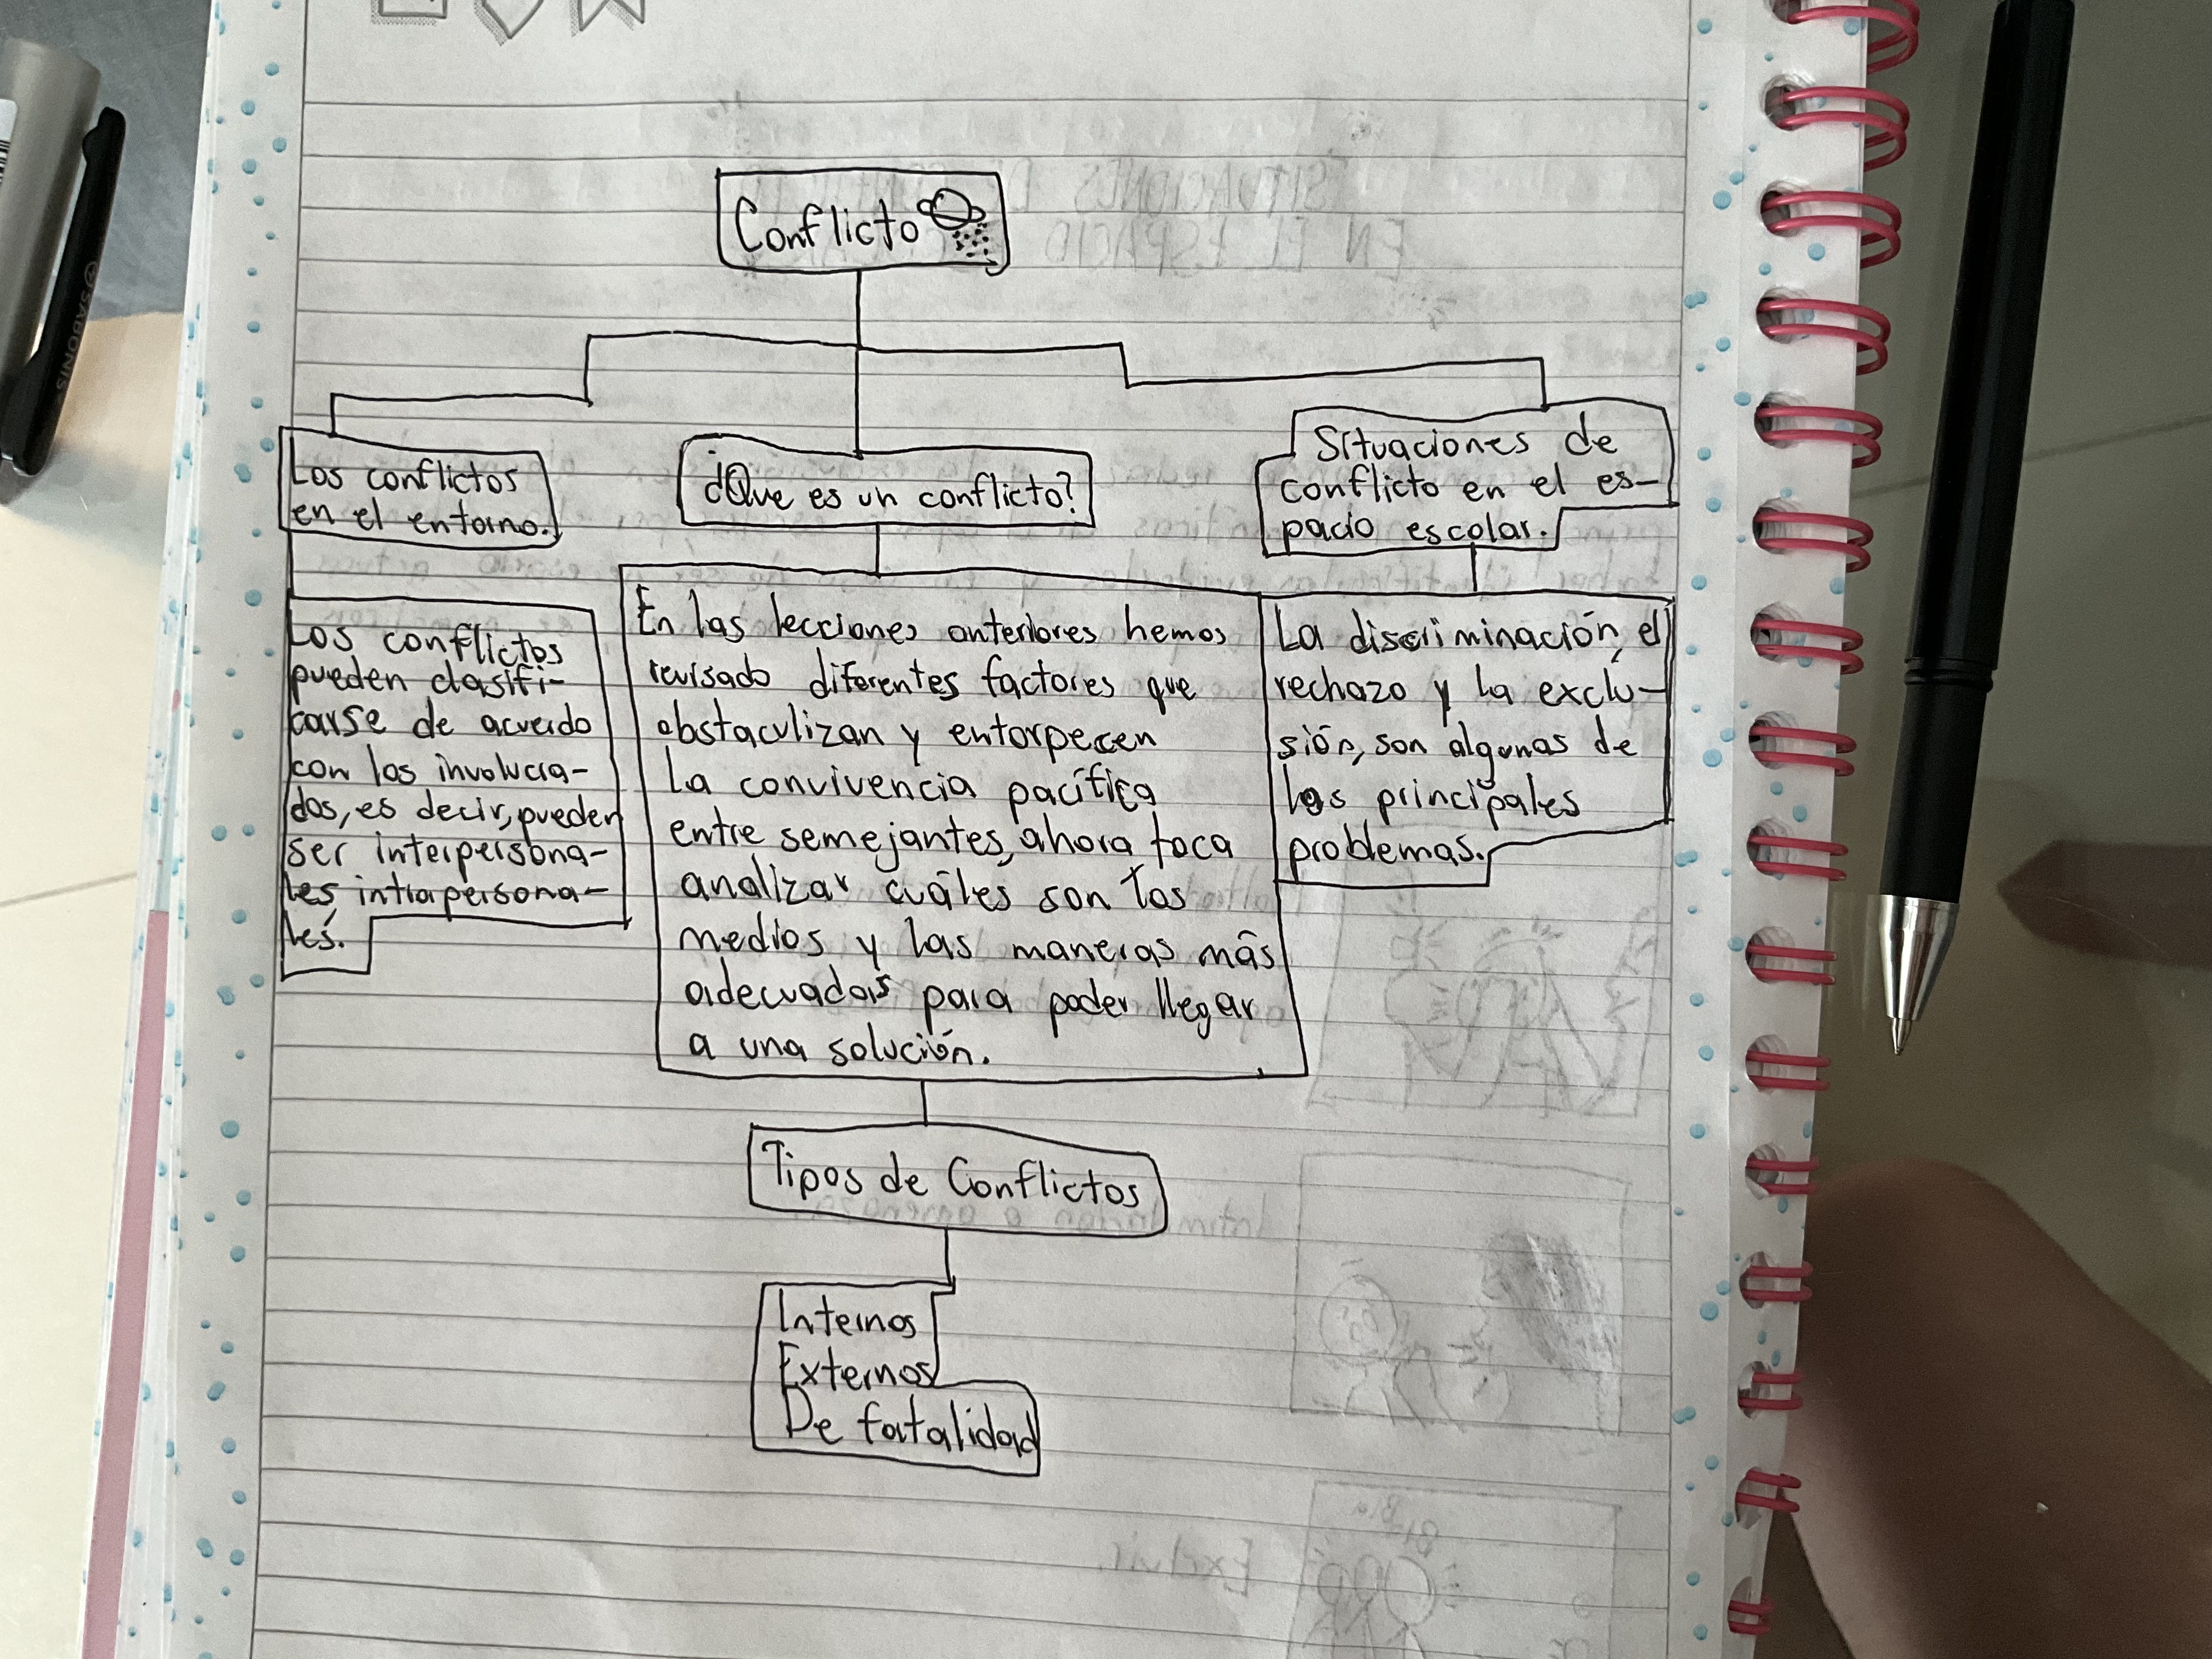 Conflicto
Los conflictos
en el entorno.
¿Que es un conflicto?
Situaciones de
conflicto en el es-
pacio escolar.
Los conflictos
pueden clasifi-
carse de acuerdo
con los involucra-
dos, es decir, pueden
ser interpersona-
les, intrapersona-
les.
En las lecciones anteriores hemos
revisado diferentes factores que
obstaculizan y entorpecen
la convivencia pacífica
entre semejantes, ahora toca
analizar cuáles son los
medios y las maneras más
adecuadas para poder llegar
a una solución.
La discriminación, el
rechazo y la exclu-
sión, son algunas de
los principales
problemas.
Tipos de Conflictos
Internos
Externos
De fatalidad
SABONIS